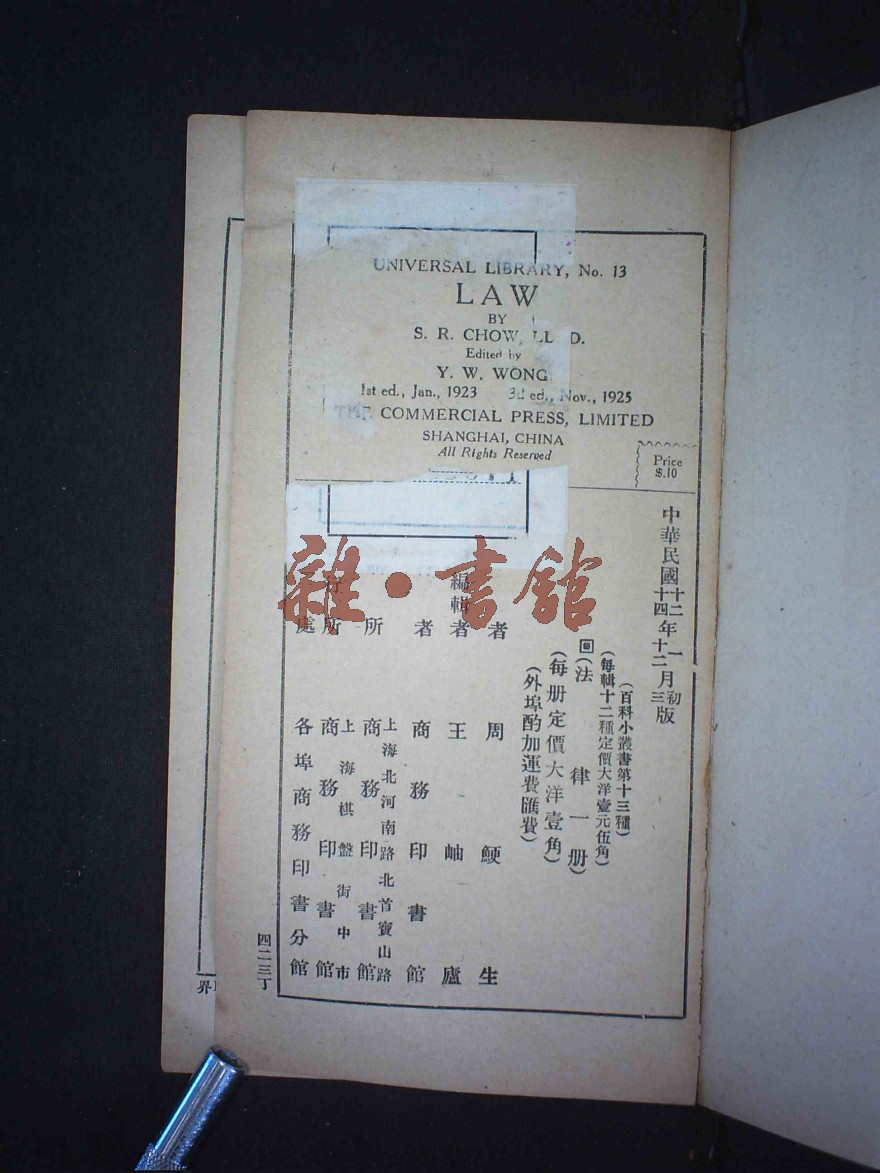 UNIVERSAL LIBRARY, No. 13
LAW
BY
S. R. CHOW, LL. D.
Edited by
Y. W. WONG
1st ed., Jan., 1923 3d ed., Nov., 1925
THE COMMERCIAL PRESS, LIMITED
SHANGHAI, CHINA
All Rights Reserved
Price
$.10
中華民國十二年一月初版
十四 十二 三
(百科小叢書第十三種)
(每輯十二種定價大洋壹元伍角)
回(法律一册)
(每册定價大洋壹角)
(外埠酌加運費匯費)
者 周鯁生
編輯者 王岫廬
者 商務印書館
上海北河南路北首寶山路
所 商務印書館
上海棋盤街中市
所 商務印書館
處 各埠商務印書分館
四二三丁
界
雜·書館